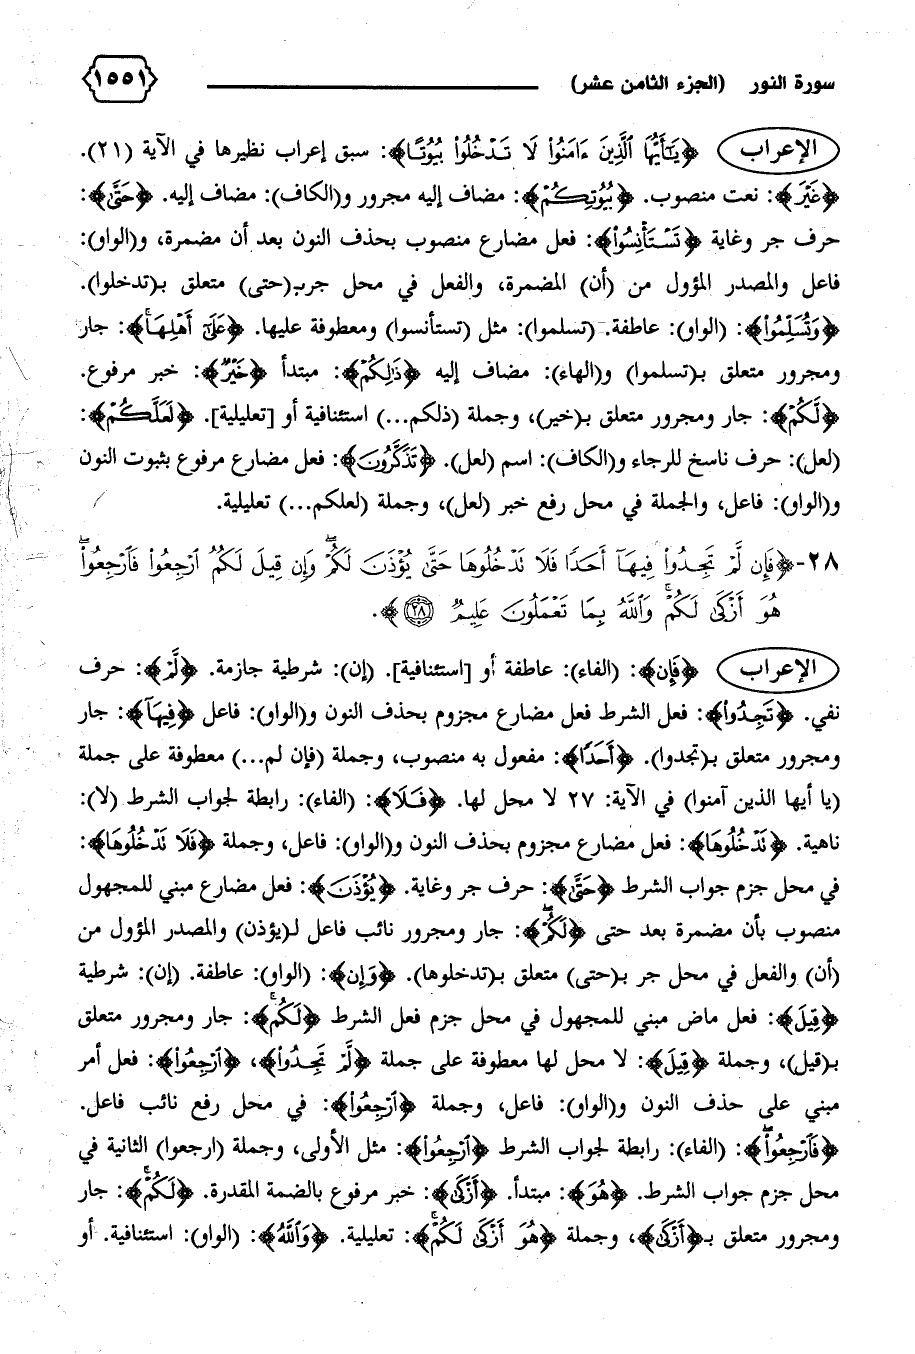 سورة النور (الجزء الثامن عشر) ١٥٥١
الإعراب ﴿يَٰٓأَيُّهَا ٱلَّذِينَ ءَامَنُوا۟ لَا تَدْخُلُوا۟ بُيُوتًا﴾: سبق إعراب نظيرها في الآية (٢١).
﴿غَيْرَ﴾: نعت منصوب. ﴿بُيُوتِكُمْ﴾: مضاف إليه مجرور و(الكاف): مضاف إليه. ﴿حَتَّىٰ﴾:
حرف جر وغاية ﴿تَسْتَأْنِسُوا۟﴾: فعل مضارع منصوب بحذف النون بعد أن مضمرة، و(الواو):
فاعل والمصدر المؤول من (أن) المضمرة، والفعل في محل جربـ(حتى) متعلق بـ(تدخلوا).
﴿وَتُسَلِّمُوا۟﴾: (الواو): عاطفة. (تسلموا): مثل (تستأنسوا) ومعطوفة عليها. ﴿عَلَىٰٓ أَهْلِهَا ۚ﴾: جار
ومجرور متعلق بـ(تسلموا) و(الهاء): مضاف إليه ﴿ذَٰلِكُمْ﴾: مبتدأ ﴿خَيْرٌ﴾: خبر مرفوع.
﴿لَّكُمْ﴾: جار ومجرور متعلق بـ(خير)، وجملة (ذلكم...) استئنافية أو [تعليلية]. ﴿لَعَلَّكُمْ﴾:
(لعل): حرف ناسخ للرجاء و(الكاف): اسم (لعل). ﴿تَذَكَّرُونَ﴾: فعل مضارع مرفوع بثبوت النون
و(الواو): فاعل، والجملة في محل رفع خبر (لعل)، وجملة (لعلكم...) تعليلية.
٢٨-﴿فَإِن لَّمْ تَجِدُوا۟ فِيهَآ أَحَدًا فَلَا تَدْخُلُوهَا حَتَّىٰ يُؤْذَنَ لَكُمْ ۖ وَإِن قِيلَ لَكُمُ ٱرْجِعُوا۟ فَٱرْجِعُوا۟ ۖ
هُوَ أَزْكَىٰ لَكُمْ ۚ وَٱللَّهُ بِمَا تَعْمَلُونَ عَلِيمٌ ٢٨﴾.
الإعراب ﴿فَإِن﴾: (الفاء): عاطفة أو [استئنافية]. (إن): شرطية جازمة. ﴿لَّمْ﴾: حرف
نفي. ﴿تَجِدُوا۟﴾: فعل الشرط فعل مضارع مجزوم بحذف النون و(الواو): فاعل ﴿فِيهَآ﴾: جار
ومجرور متعلق بـ(تجدوا). ﴿أَحَدًا﴾: مفعول به منصوب، وجملة (فإن لم...) معطوفة على جملة
(يا أيها الذين آمنوا) في الآية: ٢٧ لا محل لها. ﴿فَلَا﴾: (الفاء): رابطة لجواب الشرط (لا):
ناهية. ﴿تَدْخُلُوهَا﴾: فعل مضارع مجزوم بحذف النون و(الواو): فاعل، وجملة ﴿فَلَا تَدْخُلُوهَا﴾:
في محل جزم جواب الشرط ﴿حَتَّىٰ﴾: حرف جر وغاية. ﴿يُؤْذَنَ﴾: فعل مضارع مبني للمجهول
منصوب بأن مضمرة بعد حتى ﴿لَكُمْ ۖ﴾: جار ومجرور نائب فاعل لـ(يؤذن) والمصدر المؤول من
(أن) والفعل في محل جر بـ(حتى) متعلق بـ(تدخلوها). ﴿وَإِن﴾: (الواو): عاطفة. (إن): شرطية
﴿قِيلَ﴾: فعل ماض مبني للمجهول في محل جزم فعل الشرط ﴿لَكُمْ ۚ﴾: جار ومجرور متعلق
بـ(قيل)، وجملة ﴿قِيلَ﴾: لا محل لها معطوفة على جملة ﴿لَّمْ تَجِدُوا۟﴾، ﴿ٱرْجِعُوا۟﴾: فعل أمر
مبني على حذف النون و(الواو): فاعل، وجملة ﴿ٱرْجِعُوا۟﴾: في محل رفع نائب فاعل.
﴿فَٱرْجِعُوا۟ ۖ﴾: (الفاء): رابطة لجواب الشرط ﴿ٱرْجِعُوا۟﴾: مثل الأولى، وجملة (ارجعوا) الثانية في
محل جزم جواب الشرط. ﴿هُوَ﴾: مبتدأ. ﴿أَزْكَىٰ﴾: خبر مرفوع بالضمة المقدرة. ﴿لَكُمْ ۚ﴾: جار
ومجرور متعلق بـ﴿أَزْكَىٰ﴾، وجملة ﴿هُوَ أَزْكَىٰ لَكُمْ ۚ﴾: تعليلية. ﴿وَٱللَّهُ﴾: (الواو): استئنافية. أو